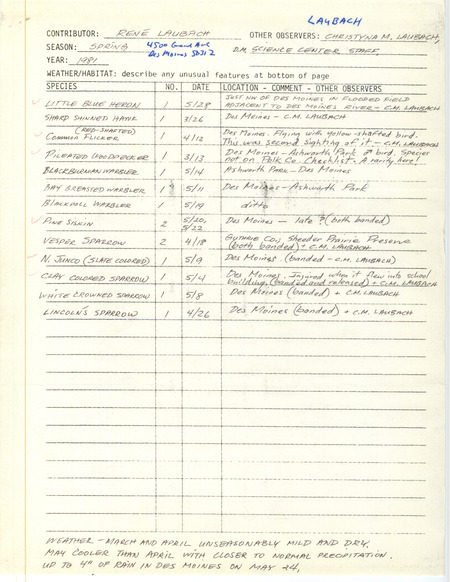 LAUBACH
CONTRIBUTOR: RENÉ LAUBACH OTHER OBSERVERS: CHRISTYNA M. LAUBACH,
SEASON: SPRING 4500 Grand Ave D.M. SCIENCE CENTER STAFF
Des Moines
YEAR: 1981
WEATHER/HABITAT: describe any unusual features at bottom of page
SPECIES NO. DATE LOCATION - COMMENT - OTHER OBSERVERS
LITTLE BLUE HERON 1 5/28 JUST NW OF DES MOINES IN FLOODED FIELD
ADJACENT TO DES MOINES RIVER - C.M. LAUBACH
SHARP SHINNED HAWK 1 3/26 Des Moines - C.M. LAUBACH
(RED-SHAFTED)
COMMON FLICKER 1 4/12 Des Moines. Flying with yellow-shafted bird.
This was second sighting of it - C.M. LAUBACH
PILEATED WOODPECKER 1 3/13 Des Moines - Ashworth Park. ♂ bird. Species
not on Polk Co. Checklist. A rarity here!
BLACKBURNIAN WARBLER 1 5/14 Ashworth Park - Des Moines
BAY BREASTED WARBLER 1 5/11 Des Moines - Ashworth Park
BLACKPOLL WARBLER 1 5/19 ditto
PINE SISKIN 2 5/20, 5/22 Des Moines - late? (both banded)
VESPER SPARROW 2 4/18 Guthrie Co., Sheeder Prairie Preserve
(both banded) + C.M. LAUBACH
N. JUNCO (SLATE COLORED) 1 5/9 Des Moines. (banded - C.M. LAUBACH)
CLAY COLORED SPARROW 1 5/4 Des Moines. Injured when it flew into school
building. (banded and released) + C.M. LAUBACH
WHITE CROWNED SPARROW 1 5/8 Des Moines (banded) + C.M. LAUBACH
LINCOLN'S SPARROW 1 4/26 Des Moines (banded) + C.M. LAUBACH
WEATHER - MARCH AND APRIL UNSEASONABLY MILD AND DRY.
MAY COOLER THAN APRIL WITH CLOSER TO NORMAL PRECIPITATION.
UP TO 4" OF RAIN IN DES MOINES ON MAY 24,